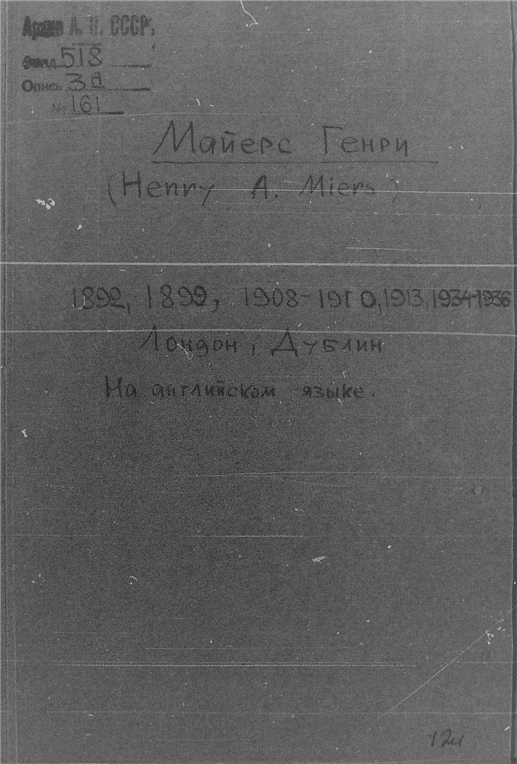 Архив А. Н. СССР.
Фонд 518
Опись 3а
№ 161
Майерс Генри
(Henry A. Miers)
1892, 1899, 1908-1910, 1913, 1934-1936
Лондон, Дублин
На английском языке.